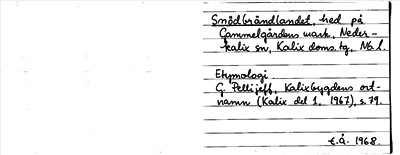 Snödbrändlandet, hed på
Gammelgårdens mark, Neder-
kalix sn, Kalix doms.tg, Nb.l.
Etymologi
G. Pellijeff, Kalixbygdens ort-
namn (Kalix del 1, 1967), s. 79.
t.å. 1968.